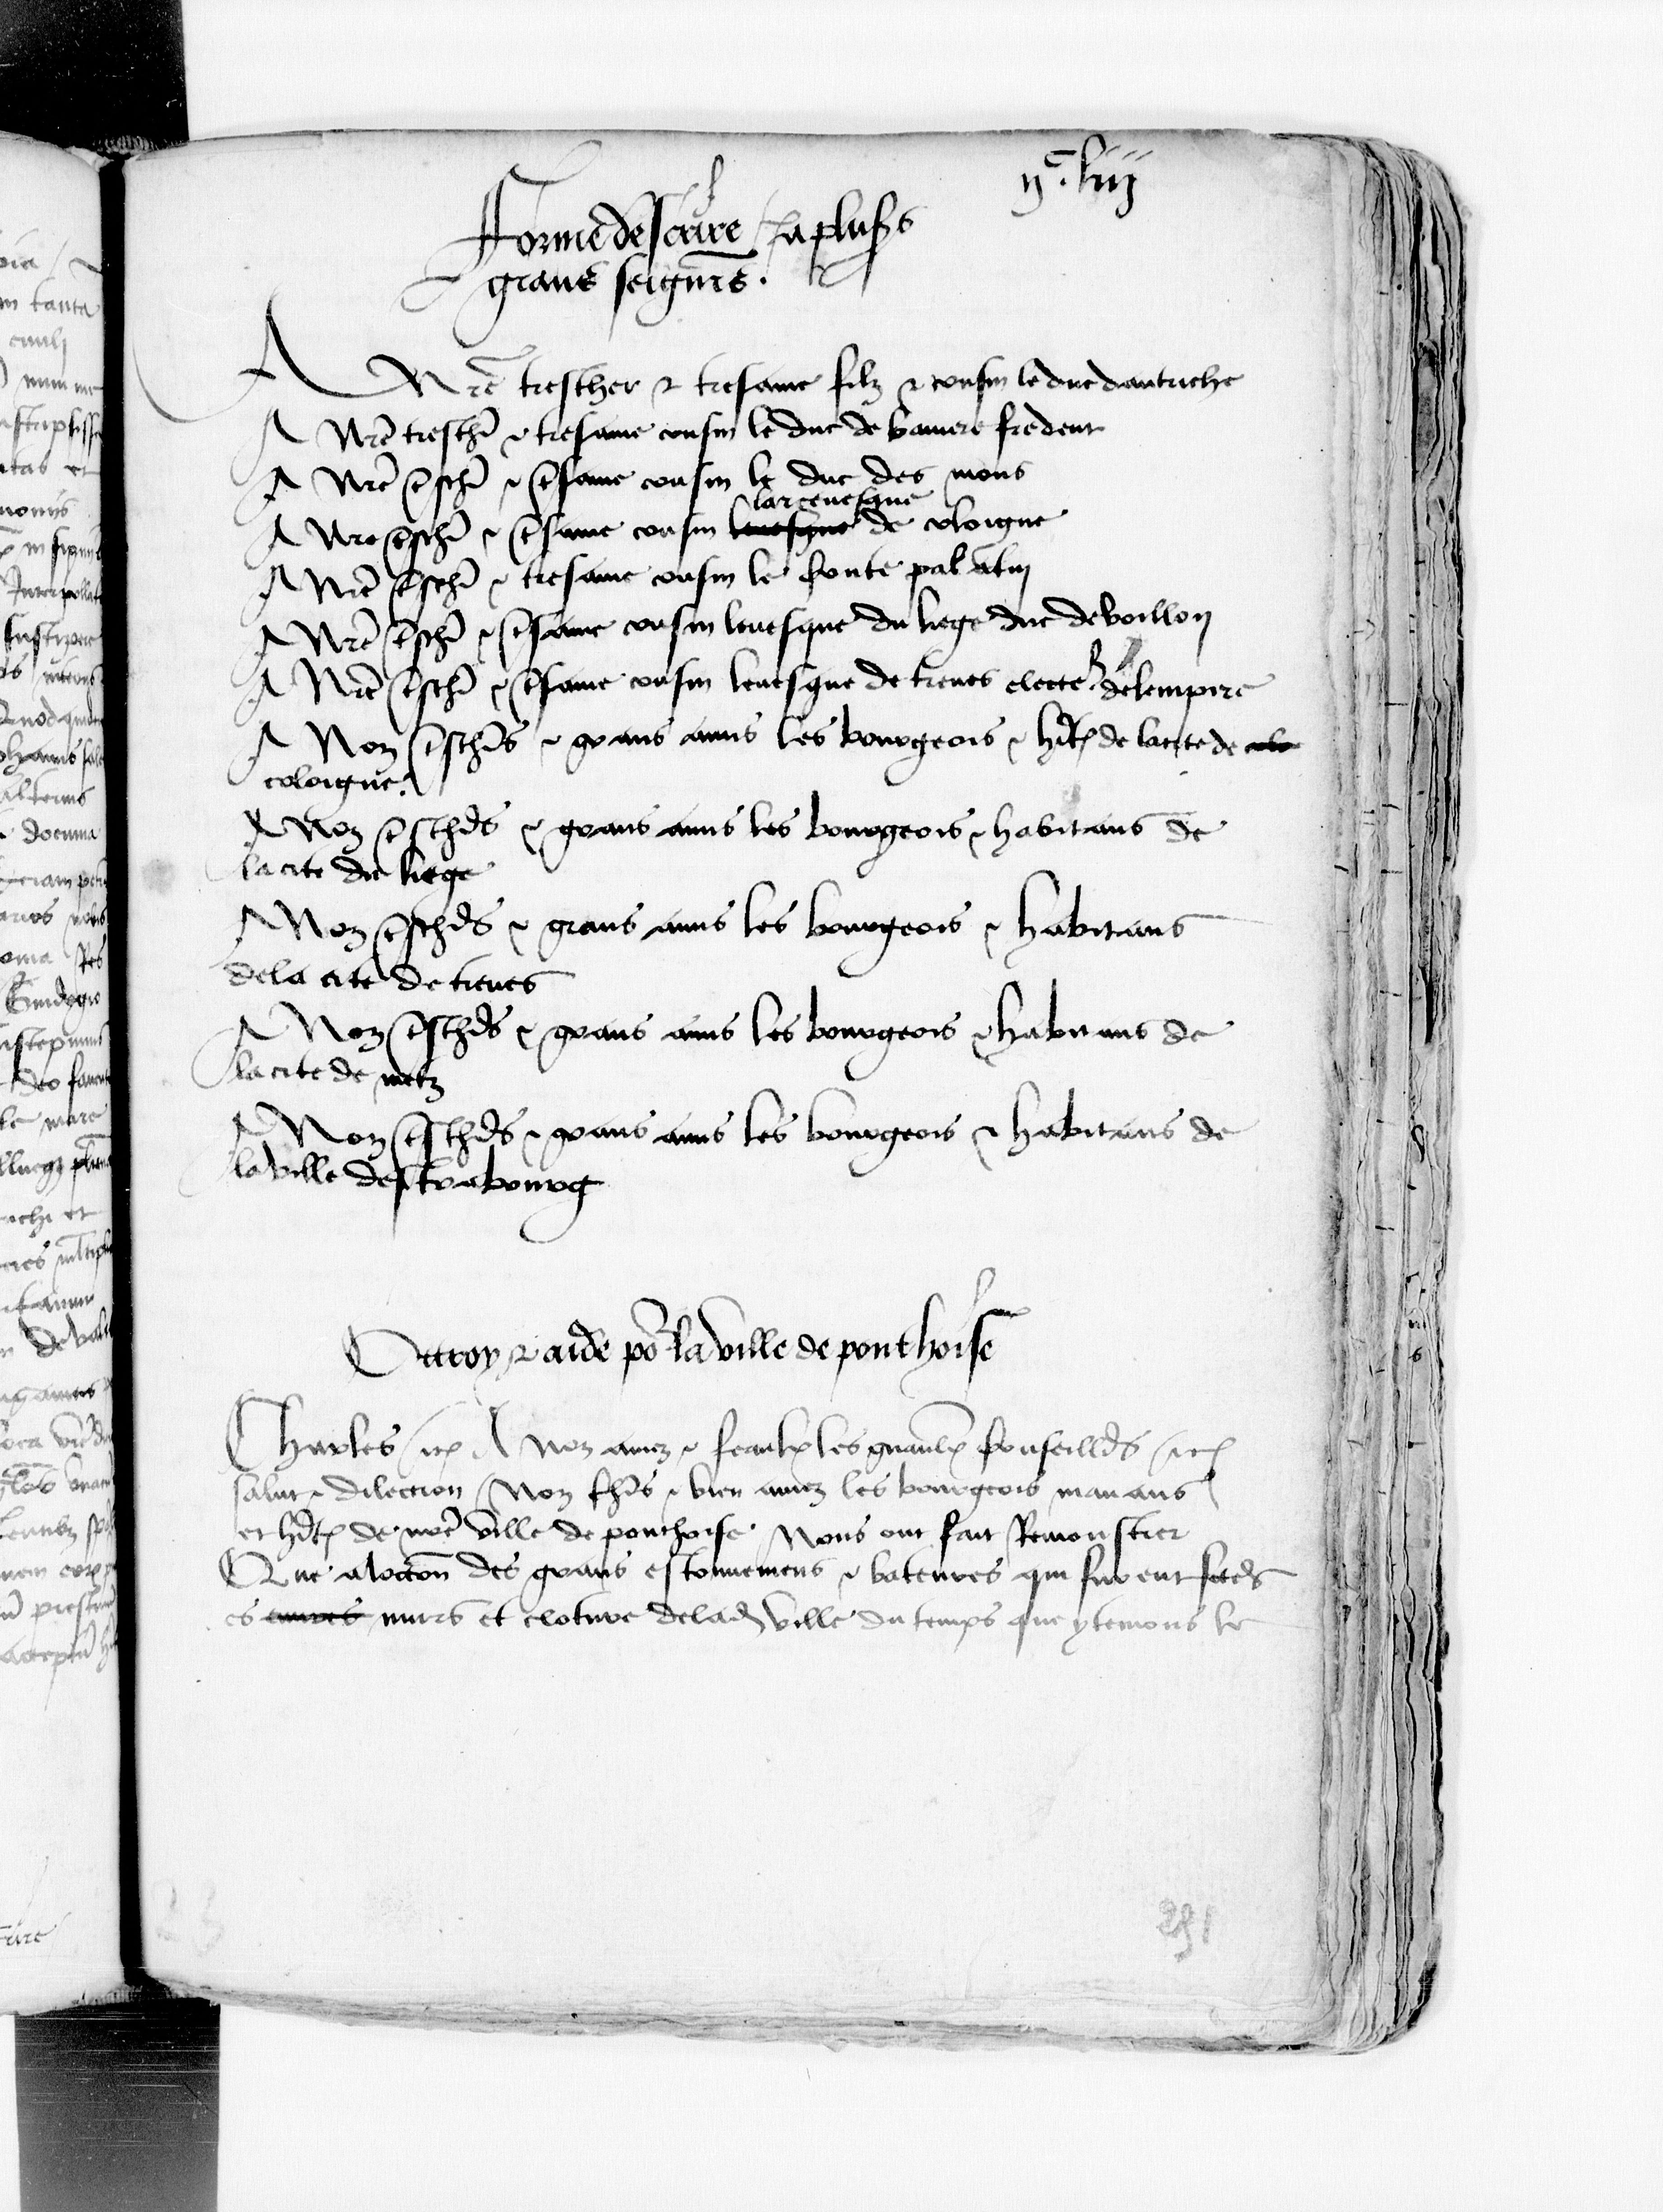 ijᶜ. liij
Forme descrire a pluss
grans seigneurs.
A Nre trescher & tresame filz & cousin le duc dautriche
A Nre treschr & tresame cousin le duc de bauiere frederic
A Nre treschr & tresame cousin le duc des mons
larceuesque
A Nre treschr & tresame cousin leuesque de coloigne
A Nre treschr & tresame cousin le conte palatin
A Nre treschr & tresame cousin leuesque du liege duc de boillon
A Nre treschr & tresame cousin leuesque de treues electeur de lempire
A Noz treschrs & grans amis les bourgeois & hitans de la cite de colo
coloigne.
A Noz treschrs & grans amis les bourgeois & habitans de
la cite du liege
A Noz treschrs & grans amis les bourgeois & habitans
de la cite de treues
A Noz treschrs & grans amis les bourgeois & habitans de
la cite de metz
A Noz treschrs & grans amis les bourgeois & habitans de
la ville destrabourg
Octroy & aide por la ville de ponthoise
Charles etc A noz amez & feaulx les gnaulx conseillrs etc
salut & dilection Noz chrs & bien amez les bourgeois manans
et hitans de nre ville de ponthoise Nous ont fait Remonstrer
Que a locon des grans estonnemens & batures qui furent fetes
es murs et cloture de lad ville du temps que y temons le
251